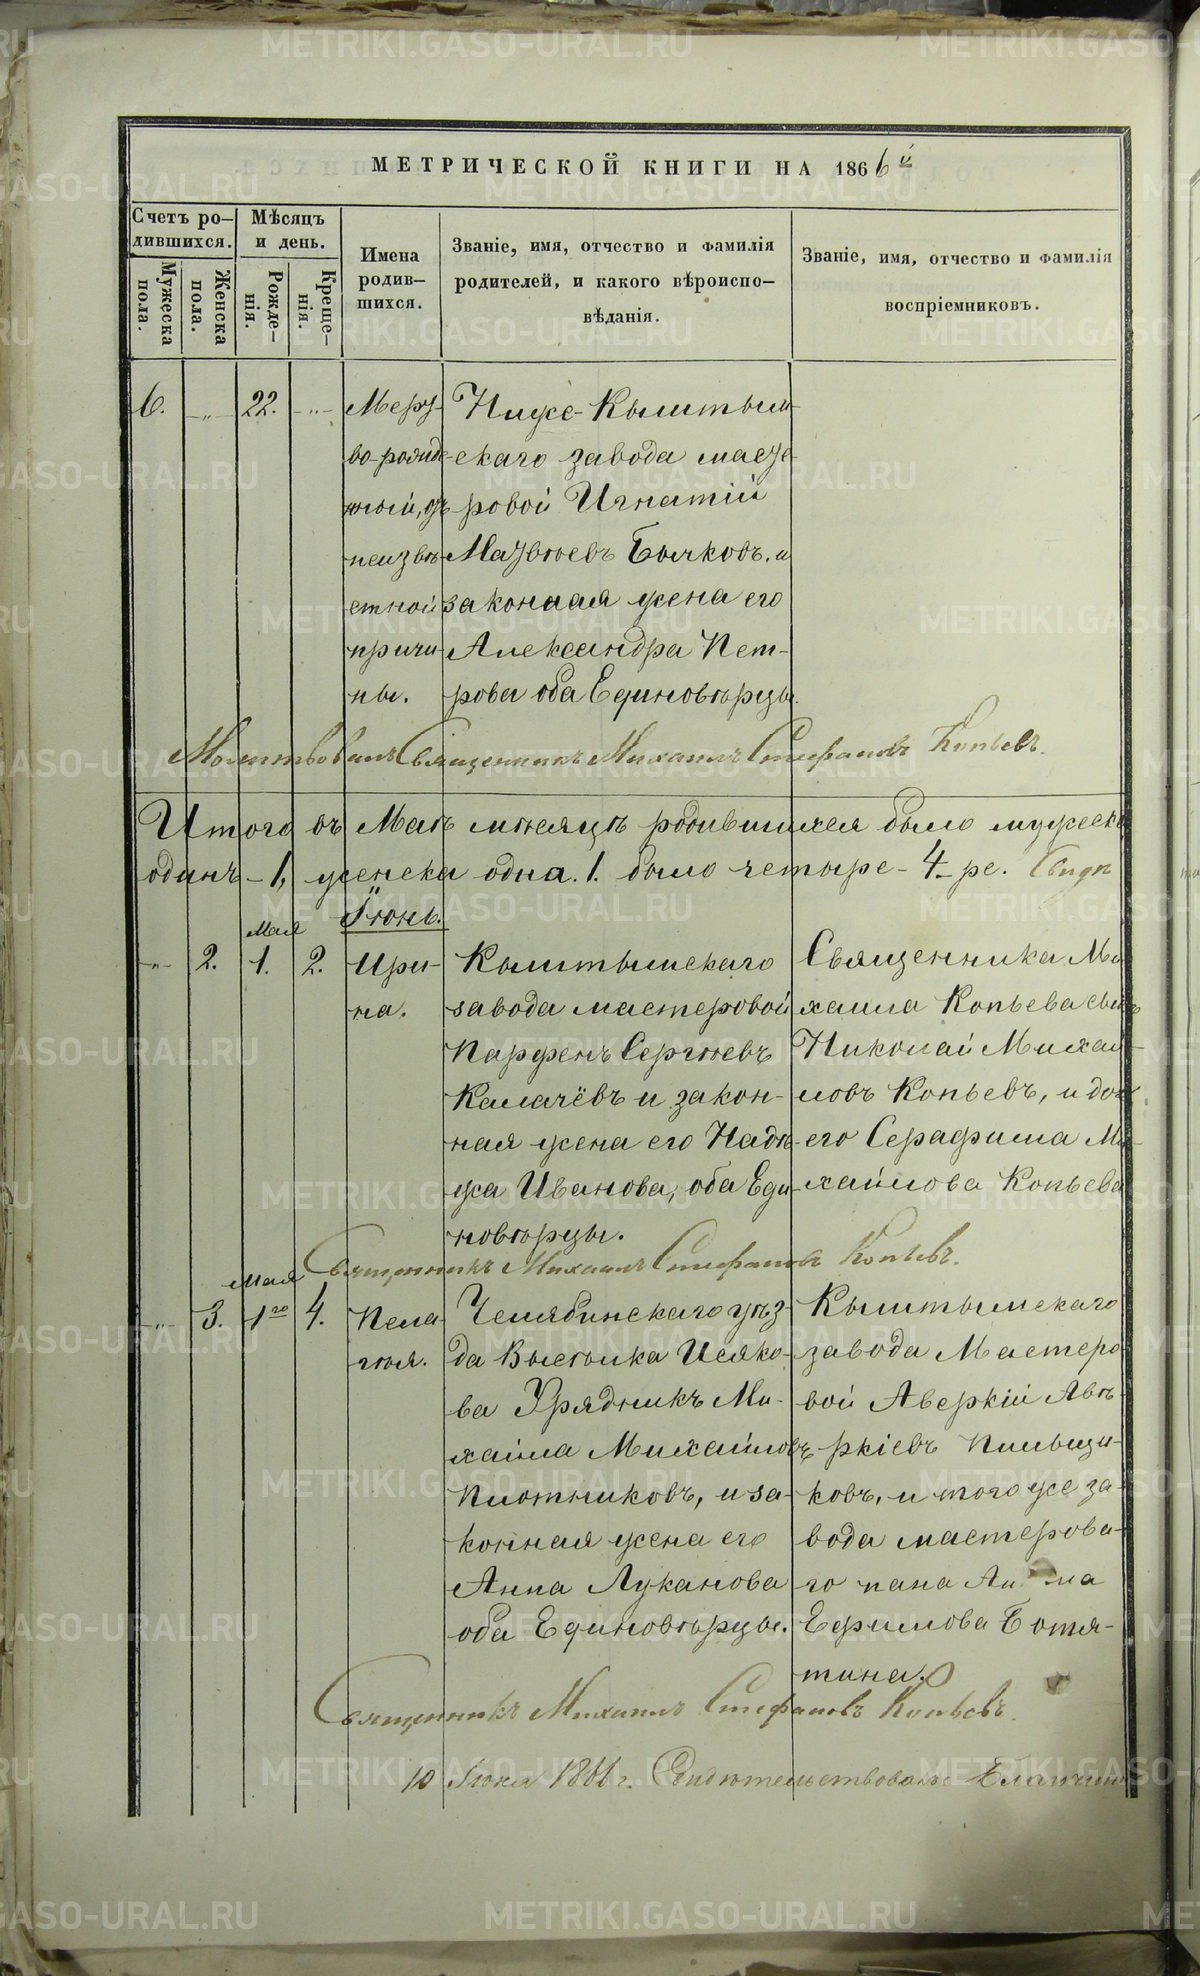 МЕТРИЧЕСКОЙ КНИГИ НА 1866й
Счетъ ро-
дившихся.
Мужеска
пола.
Женска
пола.
Мѣсяцъ
и день.
Рожде-
нія.
Креще-
нія.
Имена
родив-
шихся.
Званіе, имя, отчество и фамилія
родителей, и какого вѣроиспо-
вѣданія.
Званіе, имя, отчество и фамилія
воспріемниковъ.
6. -"- 22. -"-
Мерт-
во-рожде-
ный, отъ
неизвѣ-
стной
причи-
ны.
Ниже-Кыштым-
скаго завода масте-
ровой Игнатій
Матвѣевъ Бычковъ, и
законная жена его
Александра Пет-
рова оба Единовѣрцы.
Молитвовалъ Священникъ Михаилъ Стефановъ Копьевъ.
Итого въ Маѣ мѣсяцѣ родившихся было мужеска
одинъ - 1, женска одна. 1. было четыре - 4-ре.
Іюнь.
Мая
-"- 2. 1. 2.
Ири-
на.
Кыштымскаго
завода мастеровой
Парфенъ Сергѣевъ
Калачёвъ и закон-
ная жена его Надѣ-
жа Иванова, оба Еди-
новѣрцы.
Священника Ми-
хаила Копьева сынъ
Николай Михаи-
ловъ Копьевъ, и дочь
его Серафима Ми-
хайлова Копьева
Священникъ Михаилъ Стефановъ Копьевъ.
Мая
-"- 3. 1го 4.
Пела-
гѣя.
Челябинскаго уѣз-
да Выселка Исяко-
ва Урядникъ Ми-
хайла Михайловъ
Плотниковъ, и за-
конная жена его
Анна Луканова
оба Единовѣрцы.
Кыштымскаго
завода Мастеро-
вой Аверкій Авѣ-
ркіевъ Пильщи-
ковъ, и того же за-
вода мастерова-
го
Ефимова Ботя-
тина.
Священникъ Михаилъ Стефановъ Копьевъ.
10 Іюня 1866 г. Свидѣтельствовалъ
METRIKI.GASO-URAL.RU